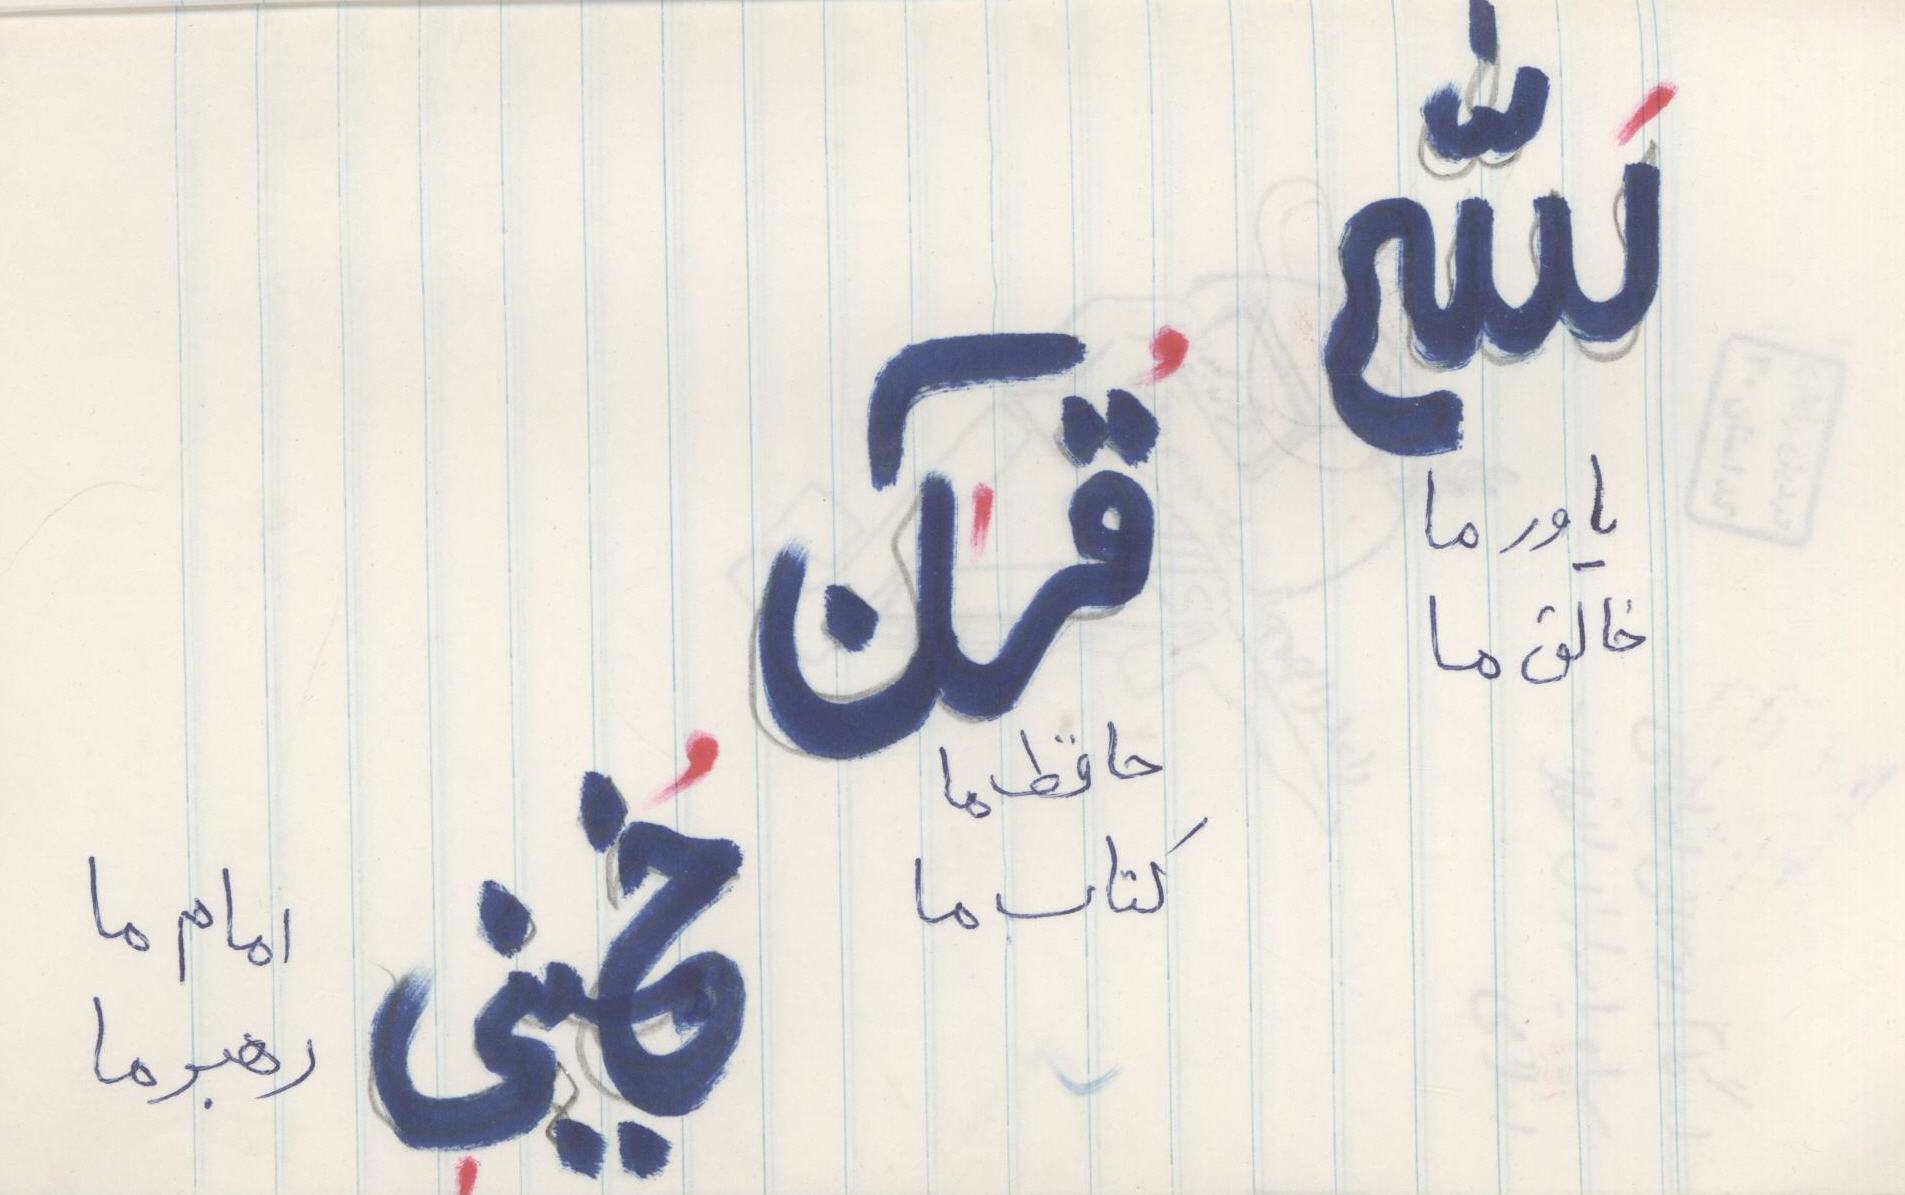 اَللّٰه
یاور ما
خالق ما
قُرآن
حافظ ما
کتاب ما
خُمینی
امام ما
رهبر ما